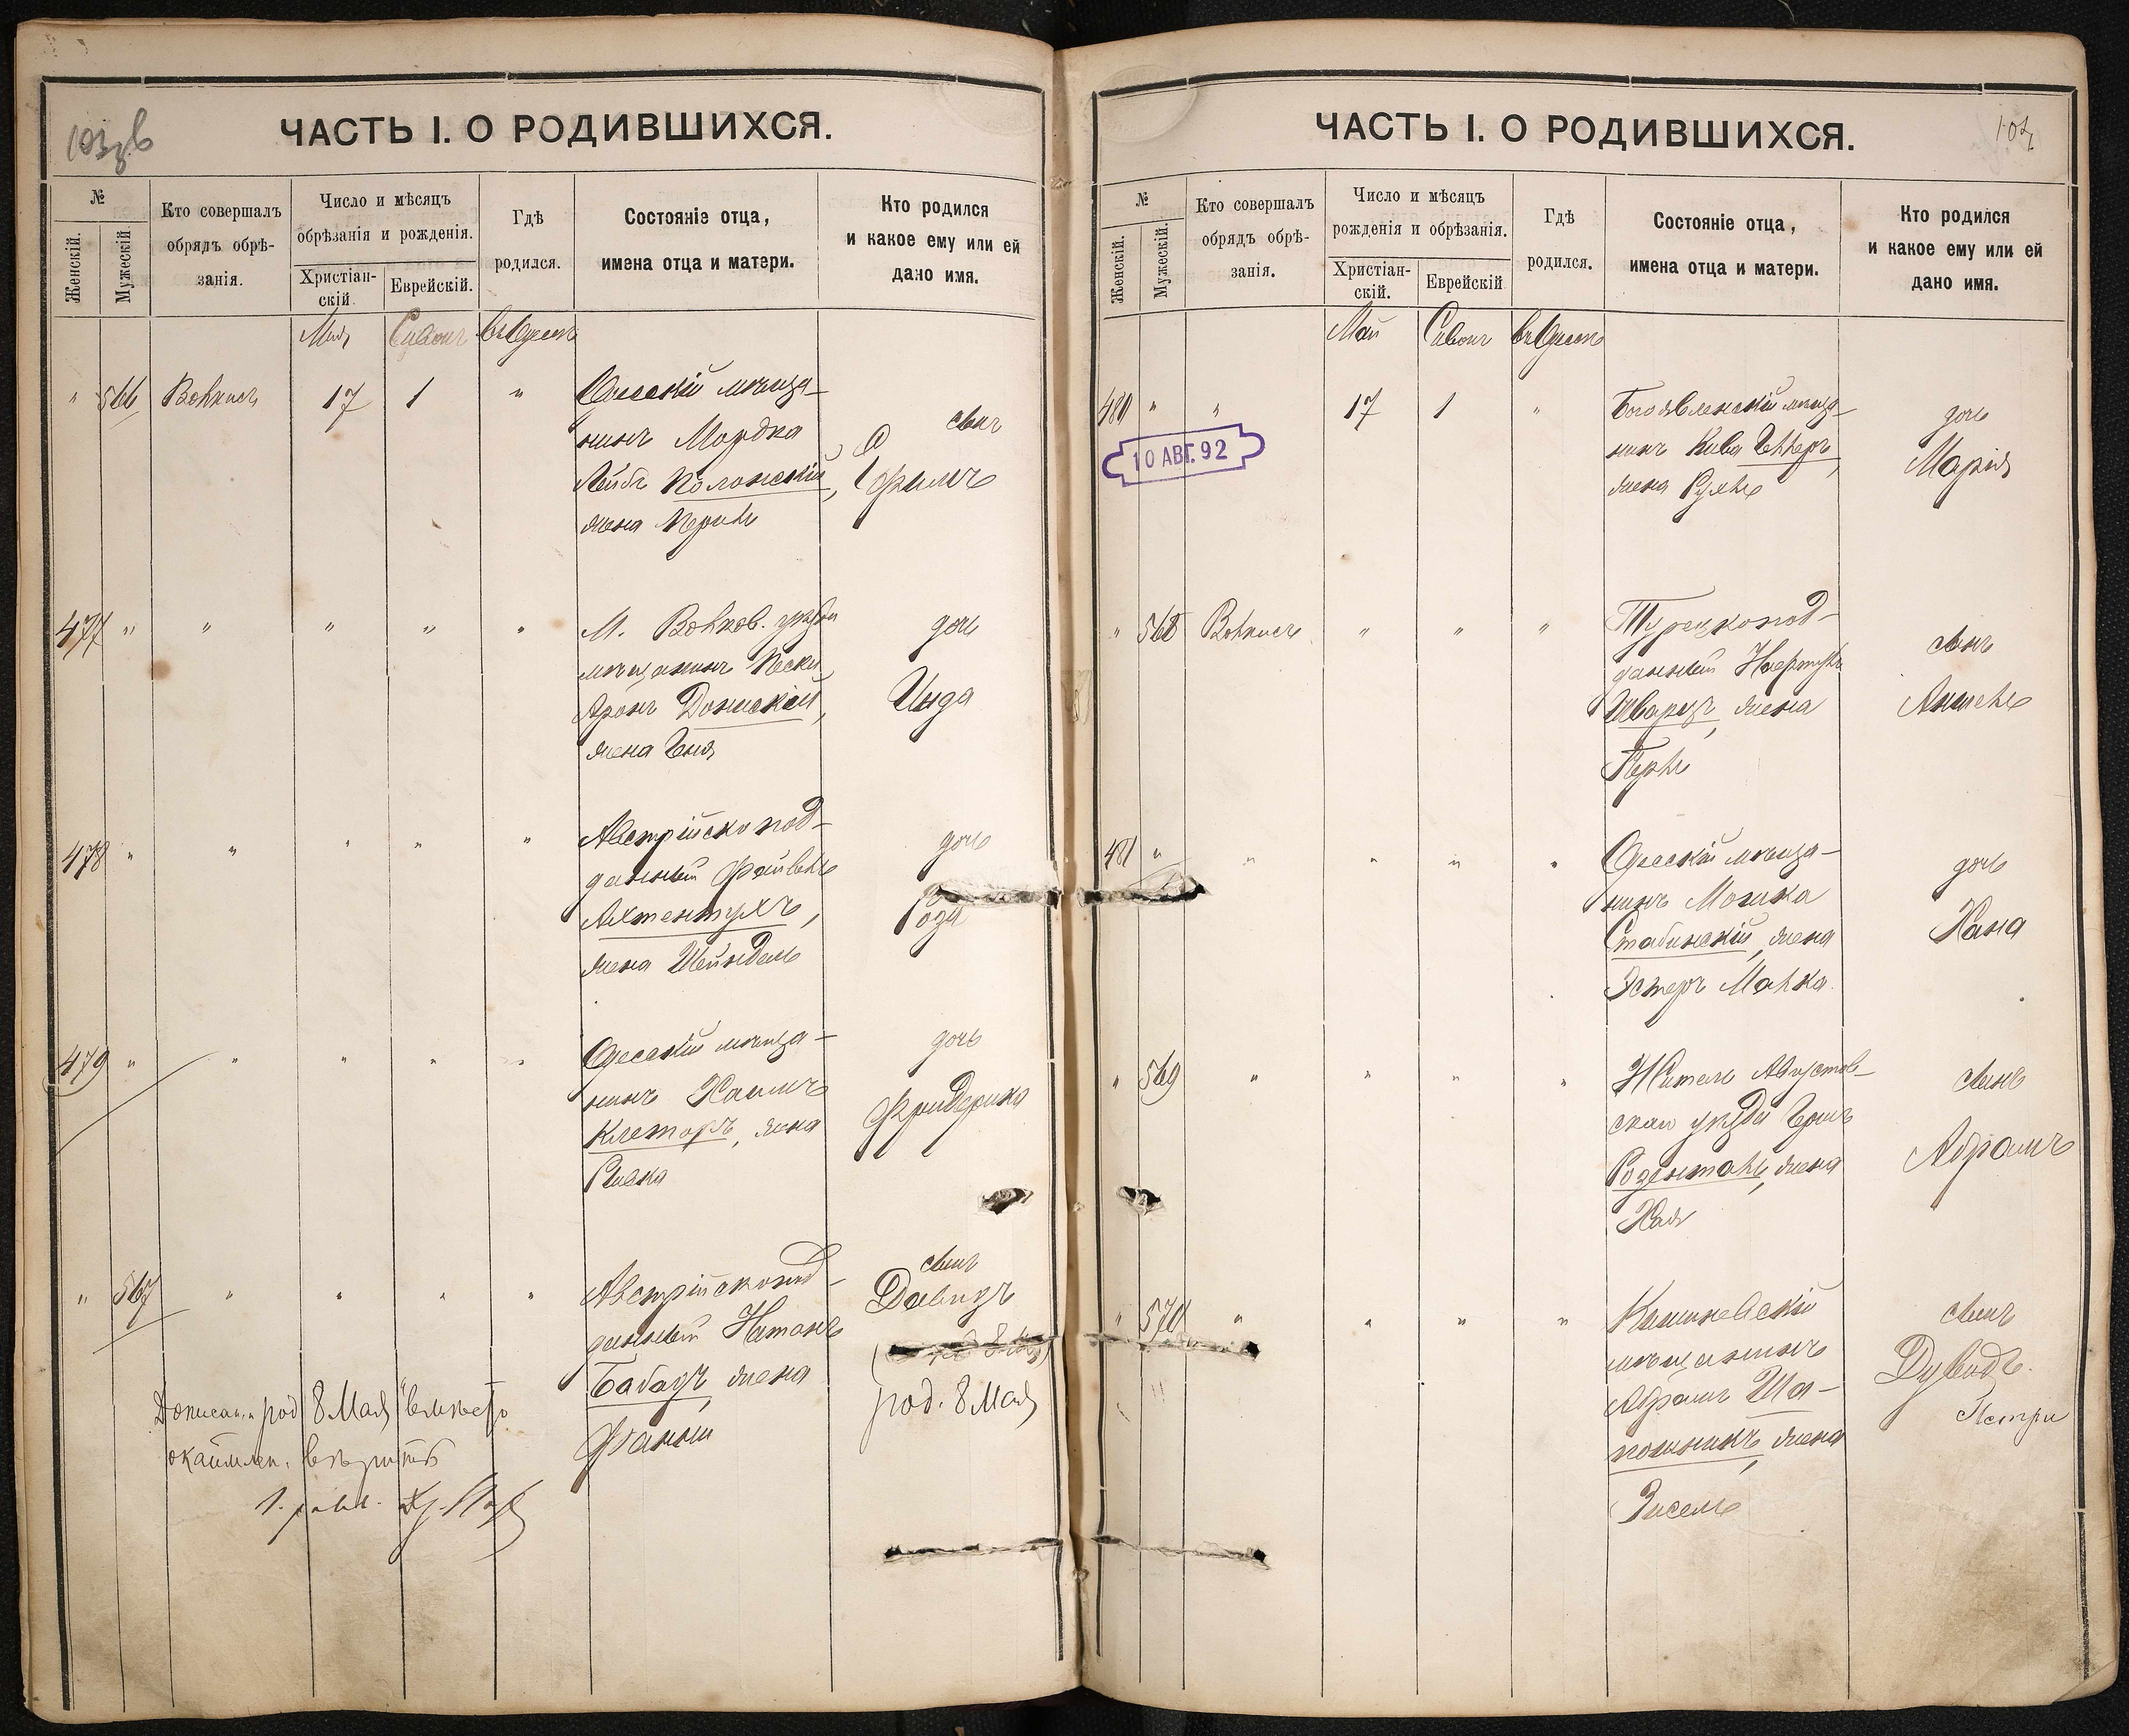 103зв
ЧАСТЬ I. О РОДИВШИХСЯ.
№
Женскій.
Мужескій.
Кто совершалъ
обрядъ обрѣ-
занія.
Число и мѣсяцъ
обрѣзанія и рожденія.
Христіан-
скій.
Еврейскій.
Гдѣ
родился.
Состояніе отца,
имена отца и матери.
Кто родился
и какое ему или ей
дано имя.
Май Сивонъ въ Одессѣ
" 566 17 1 " Одесскій мѣща-
нинъ Мордка
Лейбъ Полонскій,
жена Перль
сынъ
477 " " " " "
уѣзда
мѣщанинъ
Аронъ Донской,
жена Геня
дочь
Инда
478 " " " " " Австрійско под-
данный Файвель
Ахтентухъ,
жена Шейндель
дочь
Роза
479 " " " " " Одесскій мѣща-
нинъ Хаимъ
жена
Ривка
дочь
Фридерика
" 567 " " " " Австрійскопод-
данный Натанъ
Бабадъ, жена
Фанни
сынъ
Давидъ
род. 8 Мая
род 8 Мая вмѣсто
ЧАСТЬ I. О РОДИВШИХСЯ.
104
№
Женскій.
Мужескій.
Кто совершалъ
обрядъ обрѣ-
занія.
Число и мѣсяцъ
рожденія и обрѣзанія.
Христіан-
скій.
Еврейскій
Гдѣ
родился.
Состояніе отца,
имена отца и матери.
Кто родился
и какое ему или ей
дано имя.
Май Сивонъ въ Одессѣ
480 " " 17 1 " Богоявленскій мѣща-
нинъ Кива Геллеръ,
жена Рухль
дочь
Марія
10 АВГ. 92
" 568 " " " Турецкопод-
данный
Шварцъ, жена
Перль
сынъ
Аншель
481 " " " " " Одесскій мѣща-
нинъ Мошка
Стабинскій, жена
Эстеръ Малка
дочь
Хана
" 569 " " " " Житель Августов-
скаго уѣзда
Розенталь, жена
Хая
сынъ
Абрамъ
" 570 " " " " Кишиневскій
мѣщанинъ
Абрамъ Ша-
пошникъ, жена
сынъ
Дувидъ